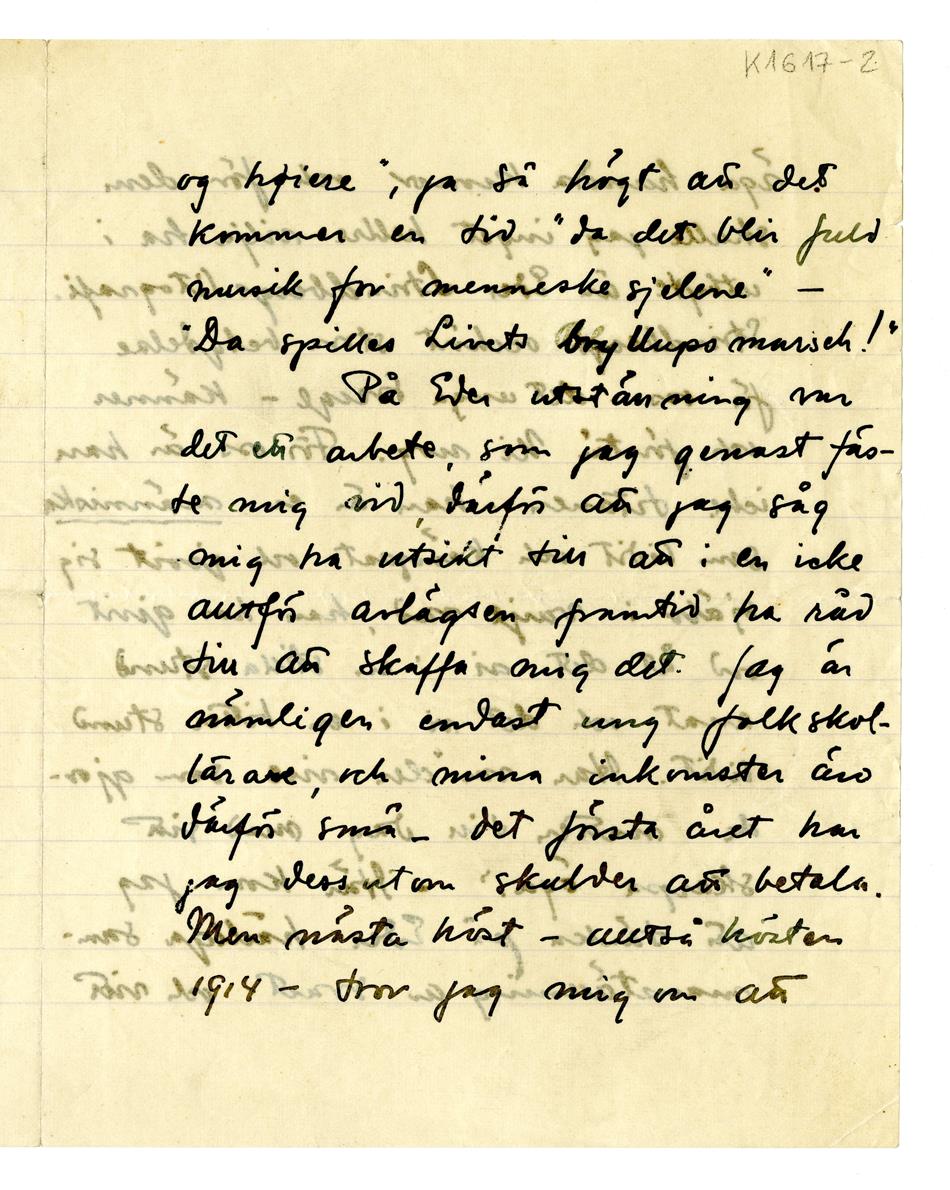 K1617-2
og høiere", ja så högt att det
kommer en tid "da det blir fuld
musik for menneskesjelene" –
"Da spilles Livets bryllupsmarsch!"
På Eder utställning var
det ett arbete, som jag genast fäs-
te mig vid, därför att jag såg
mig ha utsikt till att i en icke
alltför avlägsen framtid ha råd
till att skaffa mig det. Jag är
nämligen endast ung folkskol-
lärare, och mina inkomster äro
därför små – det första året har
jag dessutom skulder att betala.
Men nästa höst – alltså hösten
1914 – tror jag mig om att